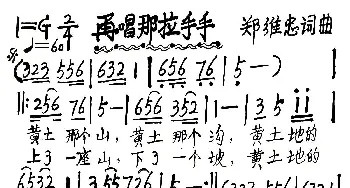 1=G 2/4 再唱那拉手手 郑维忠词曲
♩=60
(323 556 | 632 1 | 656 76 | 5 — )
‖: 256 76 | 5 — | 656 352 | 1 — | 3 5 i i |
黄土 那个 山, 黄土 那个 沟, 黄土 地的
上了 一座 山, 下了 一个 坡, 黄土 地的
6532 | 3 55726 | 5 —